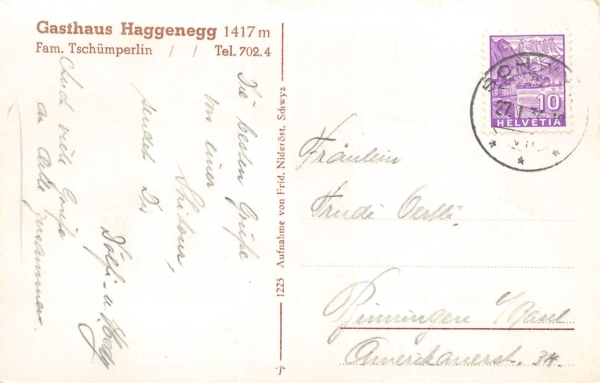 Gasthaus Haggenegg 1417 m
Fam. Tschümperlin / / Tel. 702.4
Die besten Grüße
von einer
Skitour,
sendet Dir
Dölfi u.
Auch viele Grüße
an Alle zusammen.
1225 Aufnahme von Frid. Nideröst, Schwyz
SCHWYZ
10
HELVETIA
Fräulein
Trudi Oertli
Binningen b/Basel
Amerikanerstr. 34.